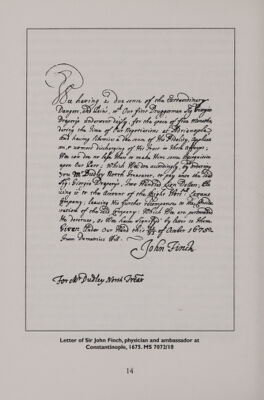 We having a due sense of the Extraordinary
Danger, and Pains, our first Druggerman Sig.r Giorgio
Draperys underwent daily, for the space of five Months,
during the time of Our Negotiations at Adrianople,
and having likewise a due sense of His Fidelity,
discharging of His Trust in those Affayrs;
Wee can do no less than to make Him some
upon Our Part; Which Wee do accordingly, by
you Mr Dudley North Treasurer, to pay unto the said
Sig.r Giorgio Draperys, two Hundred Lion Dollars,
ing it to the Account of the Right Wor.ll Levant
Company; leaving His further recompence to the
ration of the said Company: Which Wee are perswaded
He deserves, as Wee have
Given under Our Hand this of October 1675
from
John Finch
For Mr Dudley North Trear
Letter of Sir John Finch, physician and ambassador at
Constantinople, 1675. MS 7072/18
14